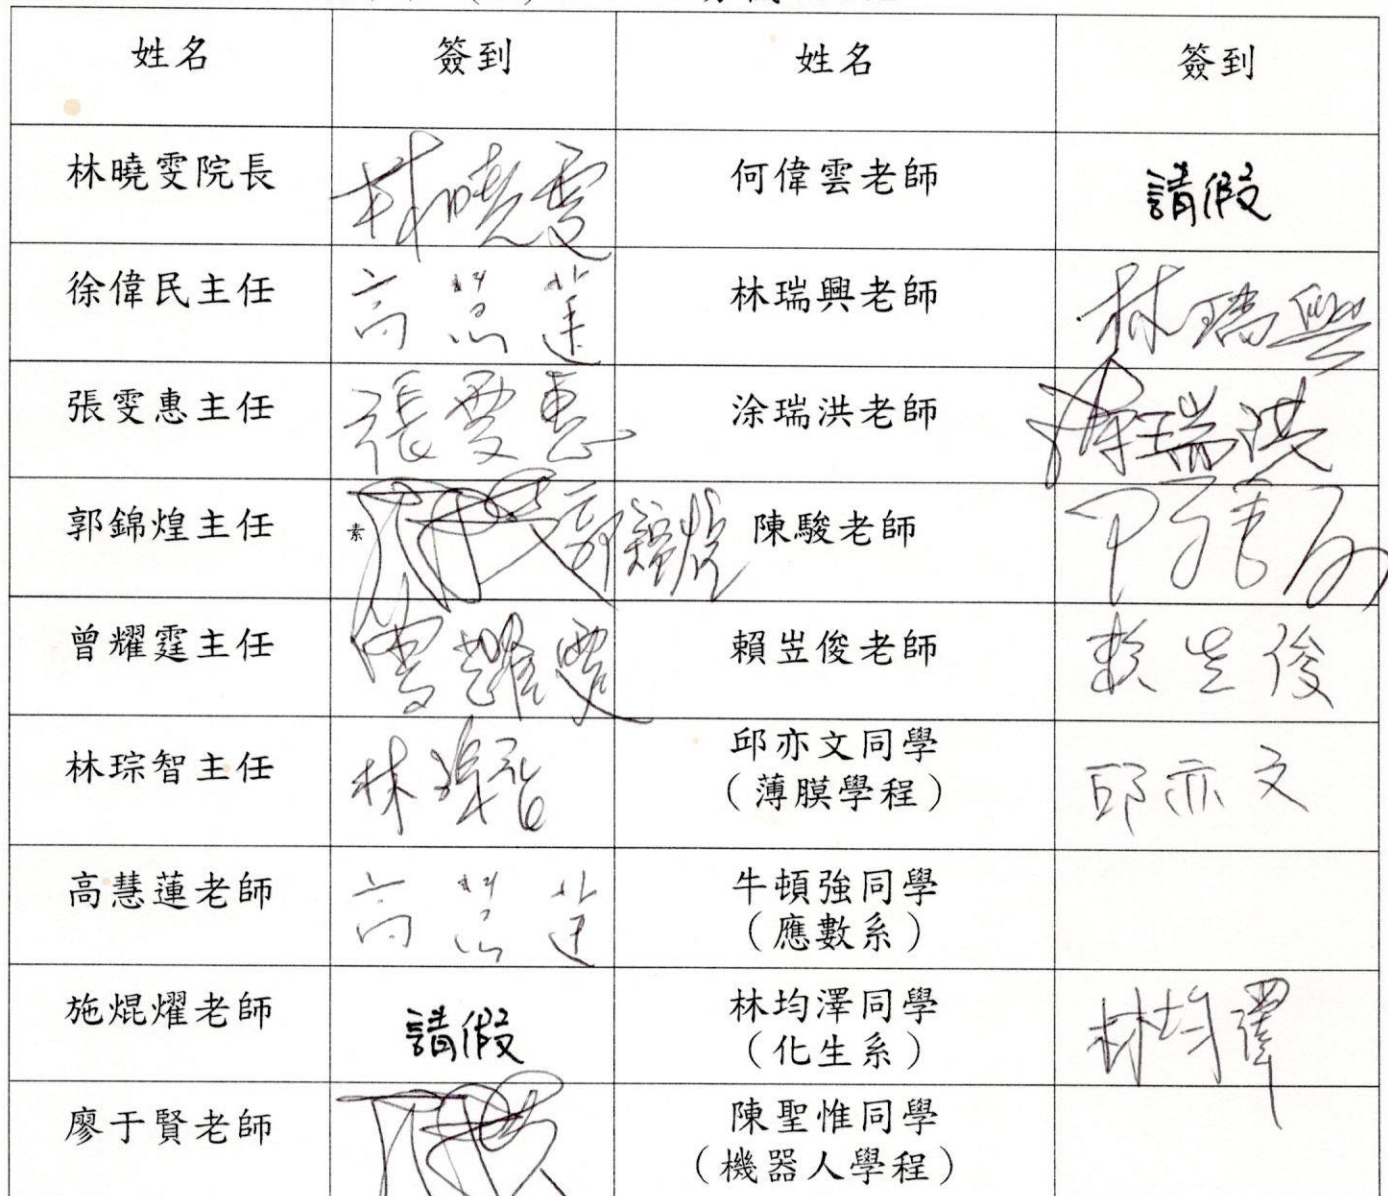 姓名 簽到 姓名 簽到
林曉雯院長 林曉雯 何偉雲老師 請假
徐偉民主任 高慧蓮 林瑞興老師 林瑞興
張雯惠主任 張雯惠 涂瑞洪老師 涂瑞洪
郭錦煌主任 素 郭錦煌 陳駿老師
曾耀霆主任 曾耀霆 賴岦俊老師 賴岦俊
林琮智主任 林琮智 邱亦文同學 邱亦文
(薄膜學程)
高慧蓮老師 高慧蓮 牛頓強同學
(應數系)
施焜燿老師 請假 林均澤同學 林均澤
(化生系)
廖于賢老師 陳聖惟同學
(機器人學程)